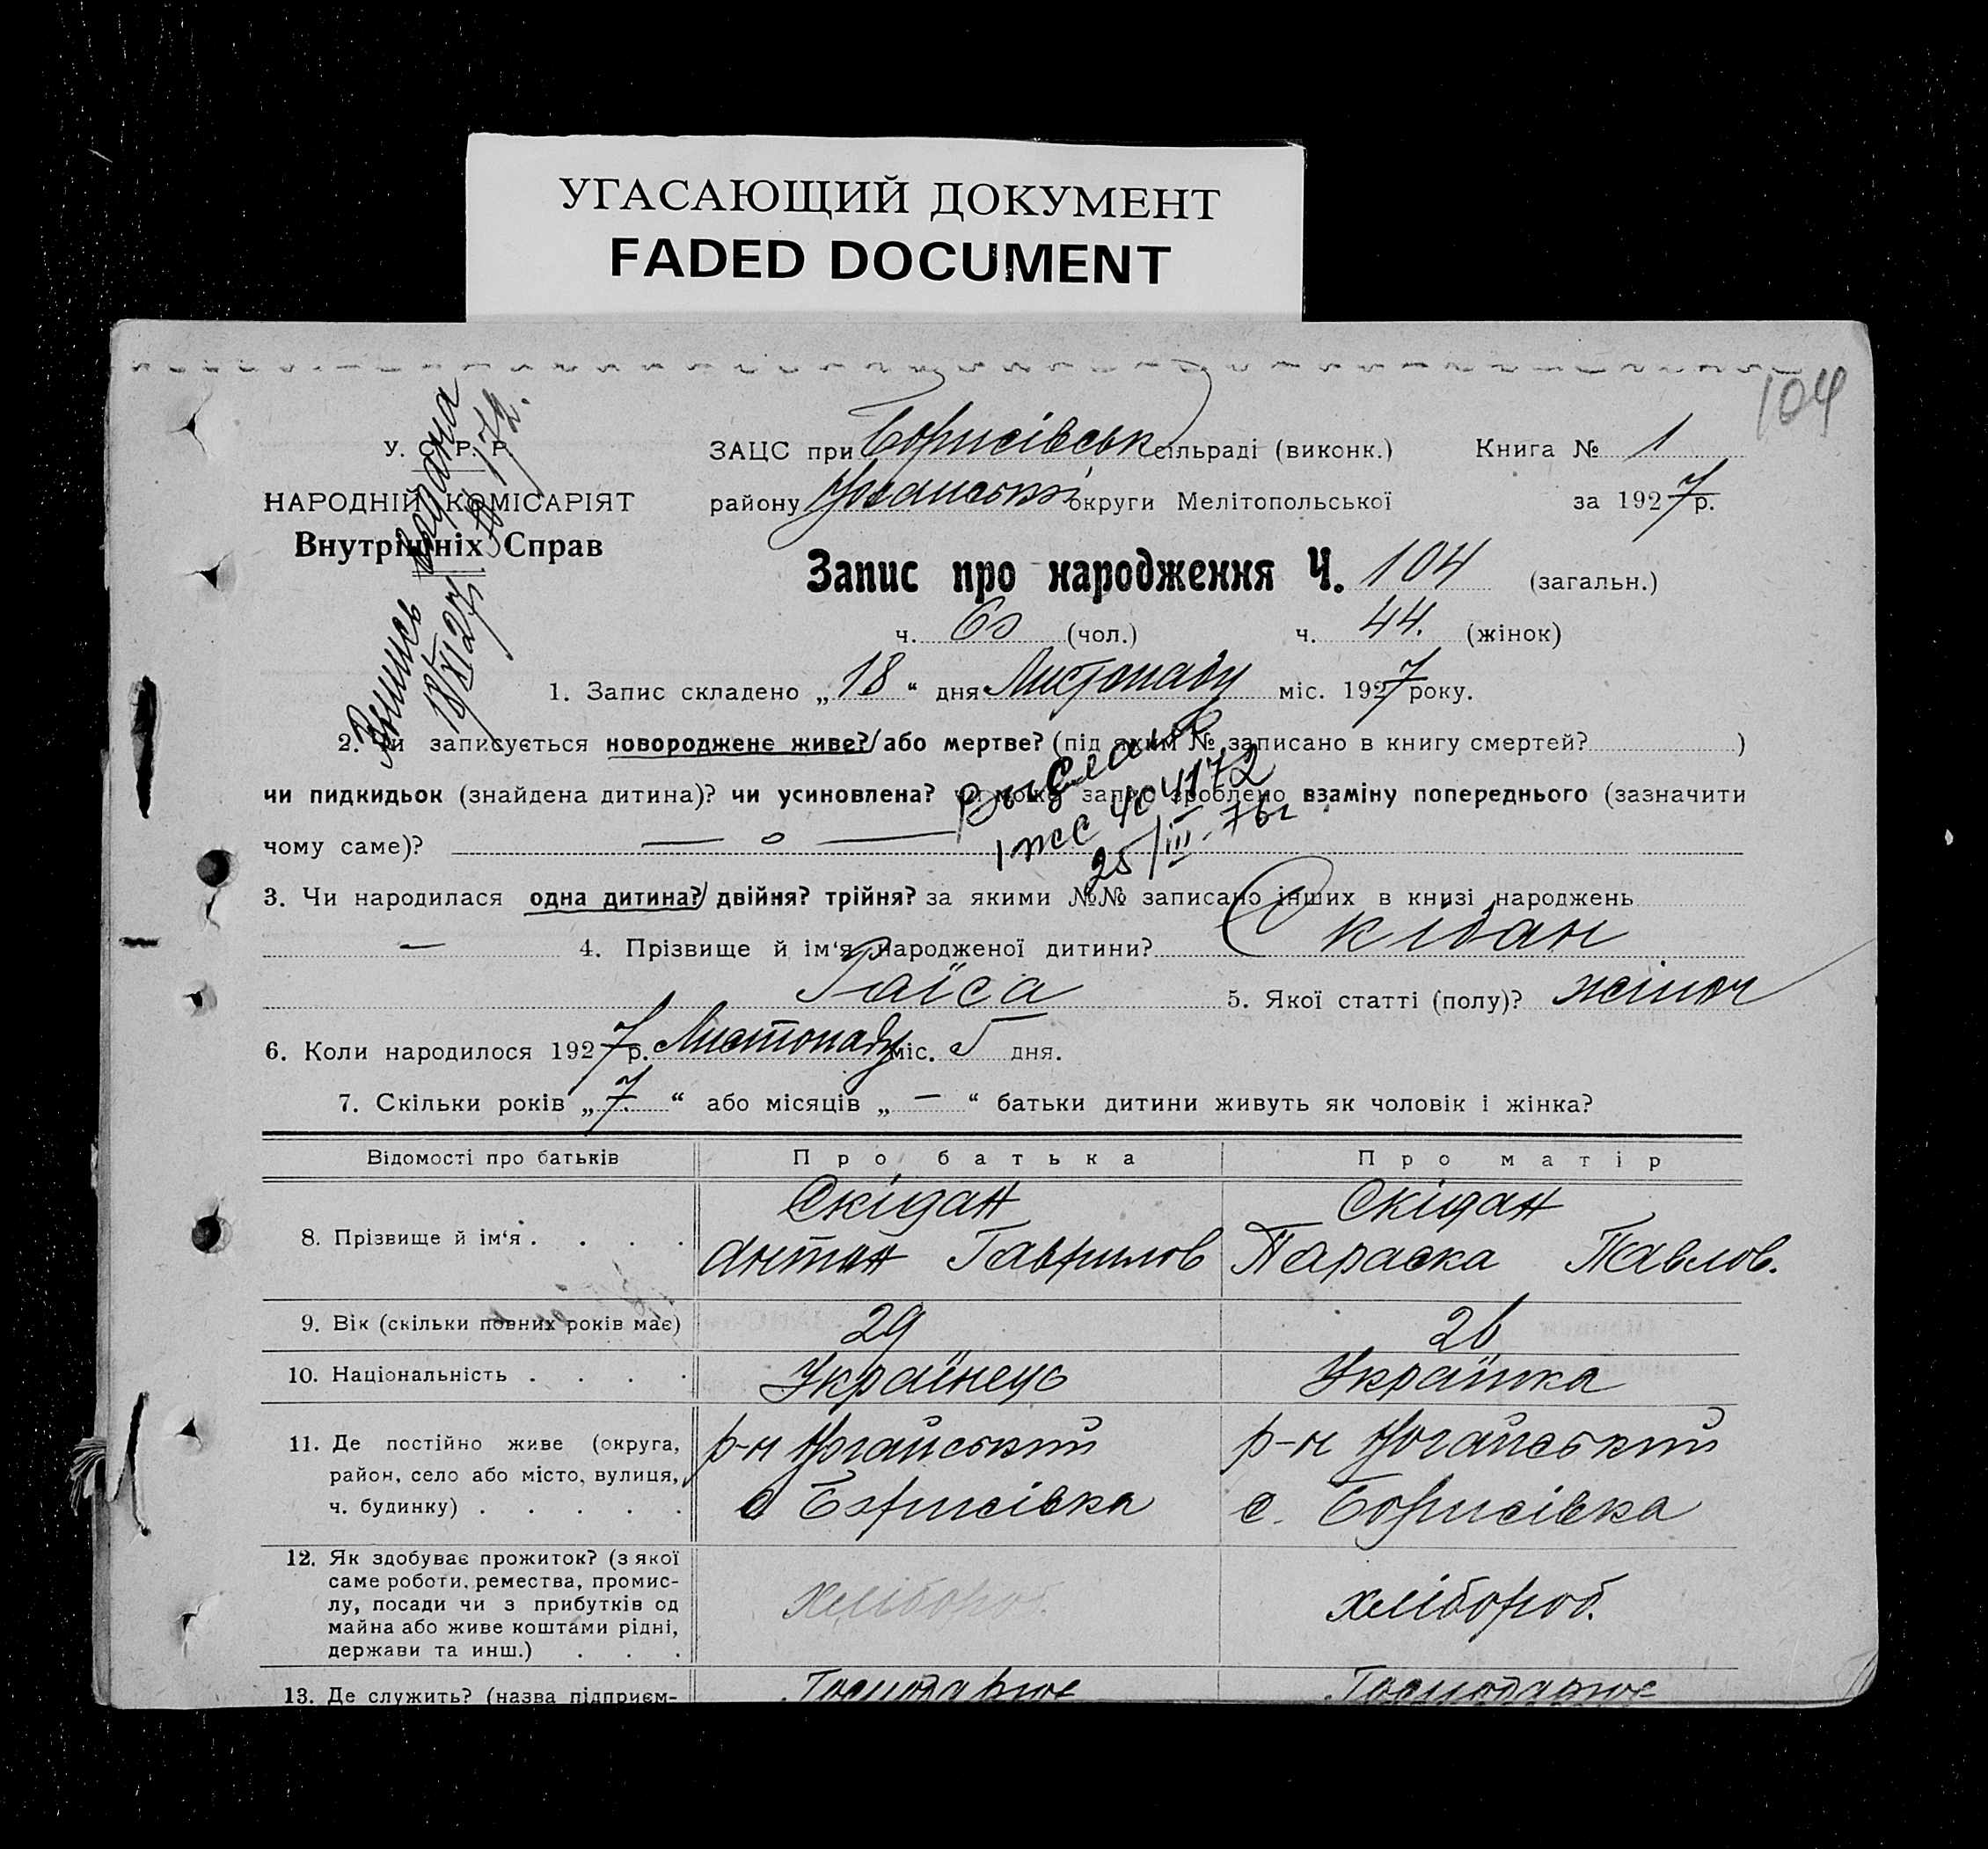 УГАСАЮЩИЙ ДОКУМЕНТ
FADED DOCUMENT
104
У. С. Р. Р.
НАРОДНІЙ КОМІСАРІЯТ
Внутрішніх Справ
ЗАЦС при Борисівськ сільраді (виконк.) Книга № 1
району Ногайської округи Мелітопольської за 1927 р.
Запис про народження Ч. 104 (загальн.)
ч. 60 (чол.) ч. 44. (жінок)
Выпись
18/XI 27
1. Запис складено „18“ дня Листопаду міс. 1927 року.
2. Чи записується новороджене живе? або мертве? (під яким № записано в книгу смертей? )
чи пидкидьок (знайдена дитина)? чи усиновлена? чи може запис зроблено взаміну попереднього (зазначити
чому саме)? — о —
404172
25/III-76г
3. Чи народилася одна дитина? двійня? трійня? за якими №№ записано інших в книзі народжень
— 4. Прізвище й ім‘я народженої дитини? Скідан
Раїса 5. Якої статті (полу)? жіноч
6. Коли народилося 1927 р. Листопаду міс. 5 дня.
7. Скільки років „7.“ або місяців „—“ батьки дитини живуть як чоловік і жінка?
Відомості про батьків Про батька Про матір
8. Прізвище й ім‘я . . . . Скідан Скідан
Антон Гаврилов Параска Павлов.
9. Вік (скільки повних років має) 29 26
10. Національність . . . . Українець Українка
11. Де постійно живе (округа, р-н Ногайський р-н Ногайський
район, село або місто, вулиця,
ч. будинку) . . . . . с Борисівка с. Борисівка
12. Як здобуває прожиток? (з якої
саме роботи, ремества, промис-
лу, посади чи з прибутків од хлібороб. хлібороб.
майна або живе коштами рідні,
держави та инш.) . . .
13. Де служить? (назва підприєм- Господарює Господарює